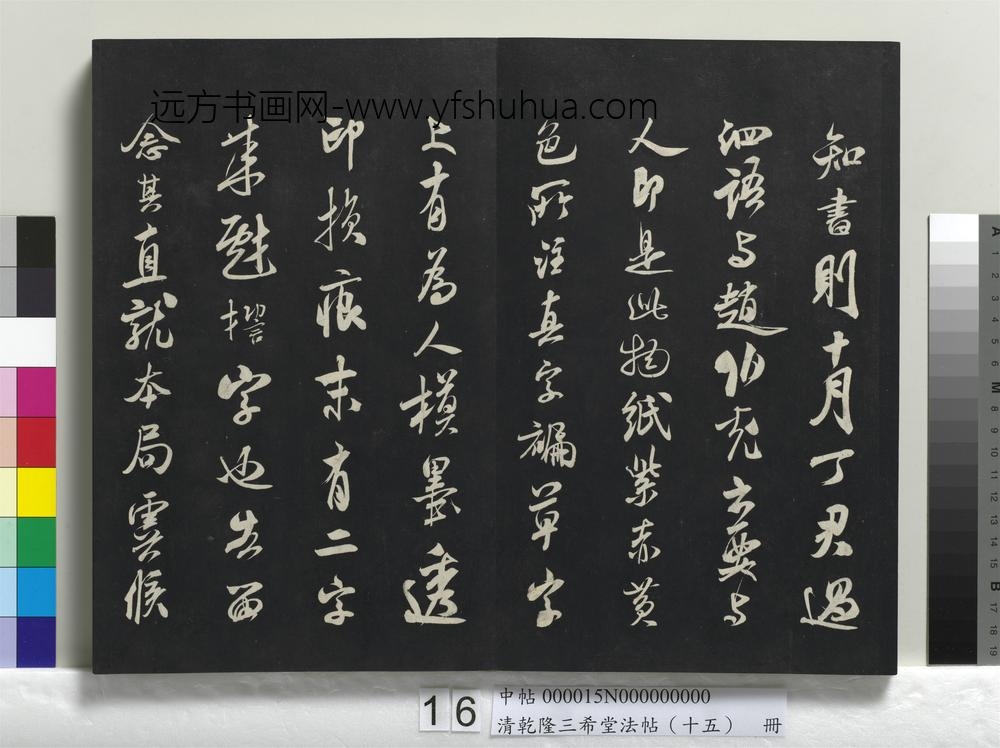 远方书画网-www.yfshuhua.com
知書則十月丁君過
泗語与趙伯充云要与
人即是此物紙紫赤黃
色所注真字褊草字
上有為人模墨透
印損痕末有二字
來 字還告留
念其直就本局虞候
16
中帖 000015N000000000
清乾隆三希堂法帖（十五） 冊
A 1 2 3 4 5 6 M 8 9 10 11 12 13 14 15 B 17 18 19